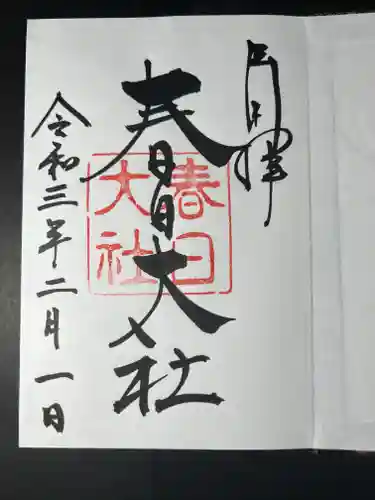 奉拝
春日大社
春日大社
令和三年二月一日